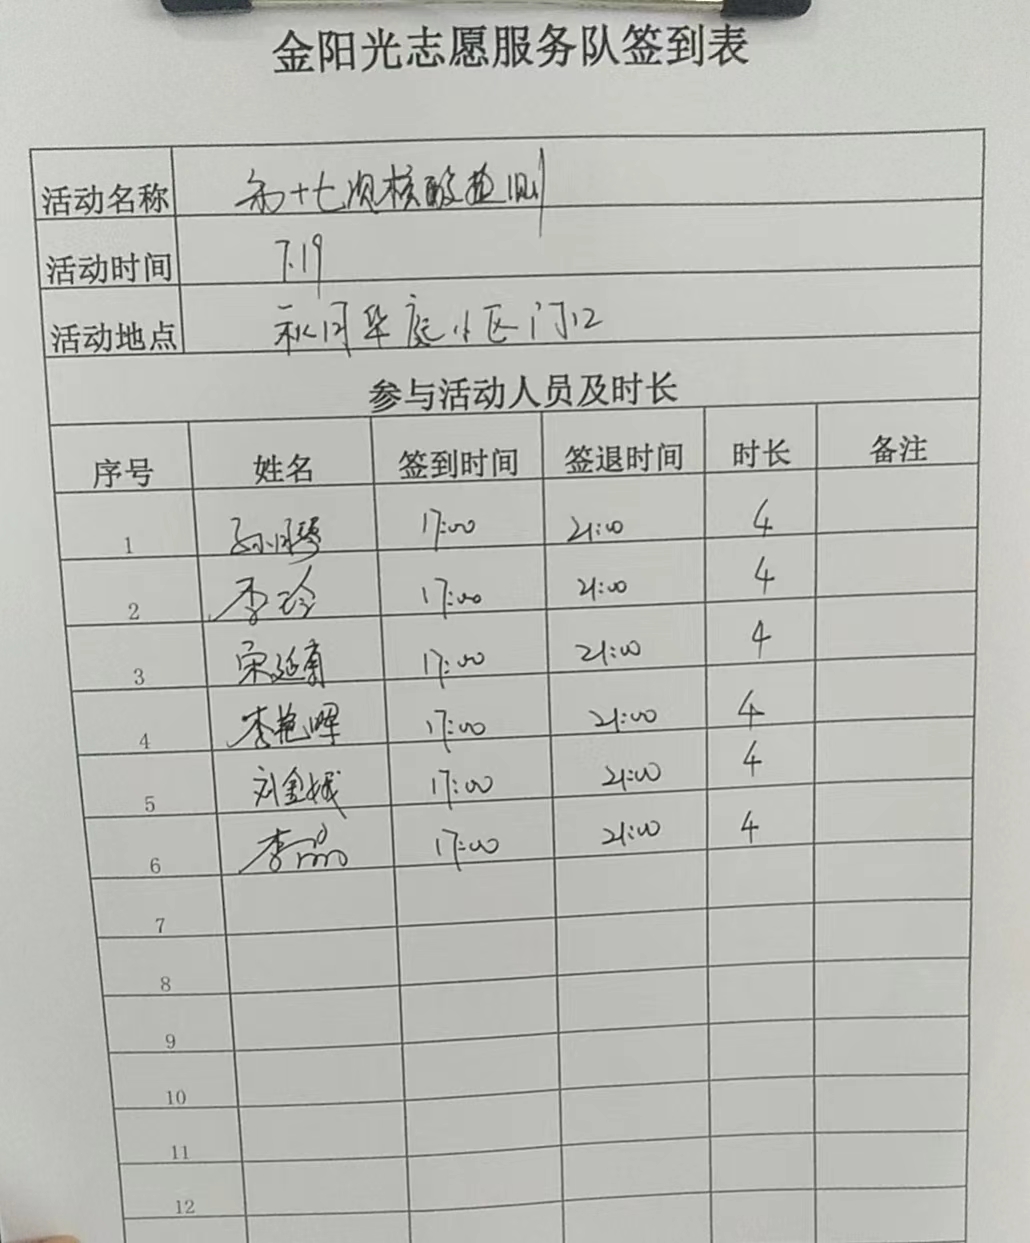 金阳光志愿服务队签到表
活动名称 第十七次核酸检测
活动时间 7.19
活动地点 秋月华庭小区门口
参与活动人员及时长
序号 姓名 签到时间 签退时间 时长 备注
1 17:00 21:00 4
2 李玲 17:00 21:00 4
3 宋延南 17:00 21:00 4
4 李艳晖 17:00 21:00 4
5 刘金娥 17:00 21:00 4
6 李晶 17:00 21:00 4
7
8
9
10
11
12